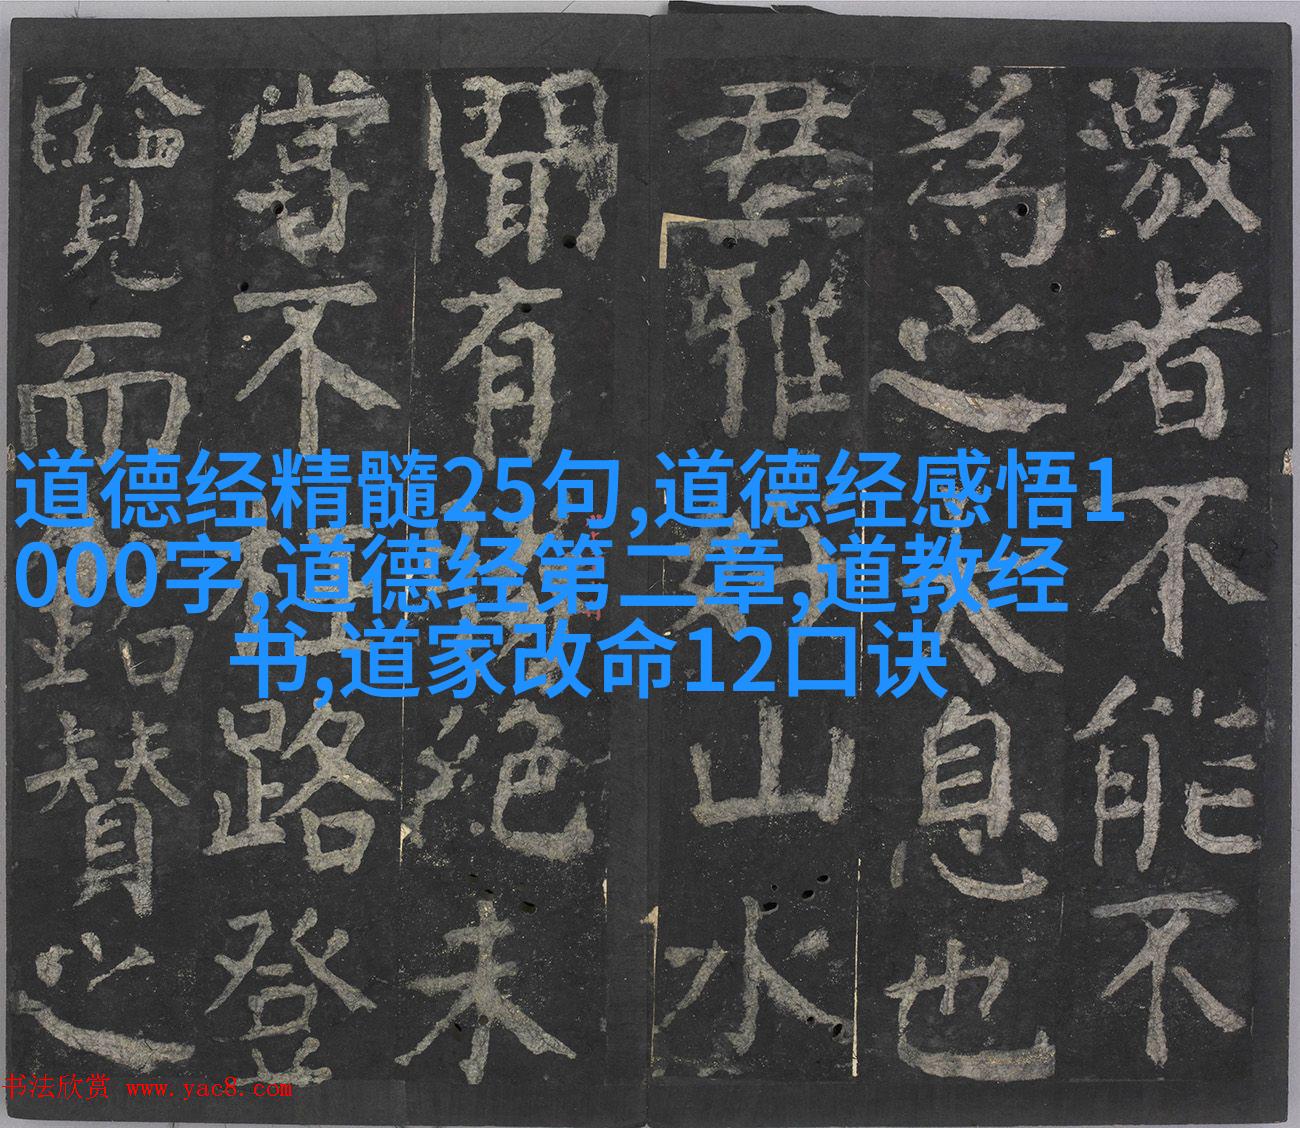 激者不能不
為之太息也
君雅好山水
聞有絕未
嘗不枉路登
覽而贊之
道德经精髓25句,道德经感悟1
000字,道德经第二章,道教经
书,道家改命12口诀
书法欣赏 www.yac8.com